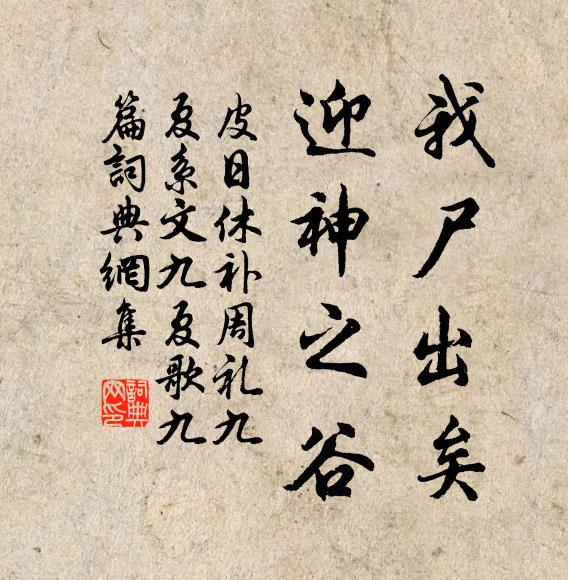 我尸出矣
迎神之谷
皮日休补周礼九
夏系文九夏歌九
篇詞典網集
詞典
网印